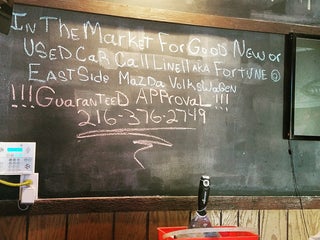 In The Market For Good New or
Used Car Call Linell AKA Fortune @
EastSide Mazda Volkswagen
!!!Guaranteed Approval!!!
216-376-2749